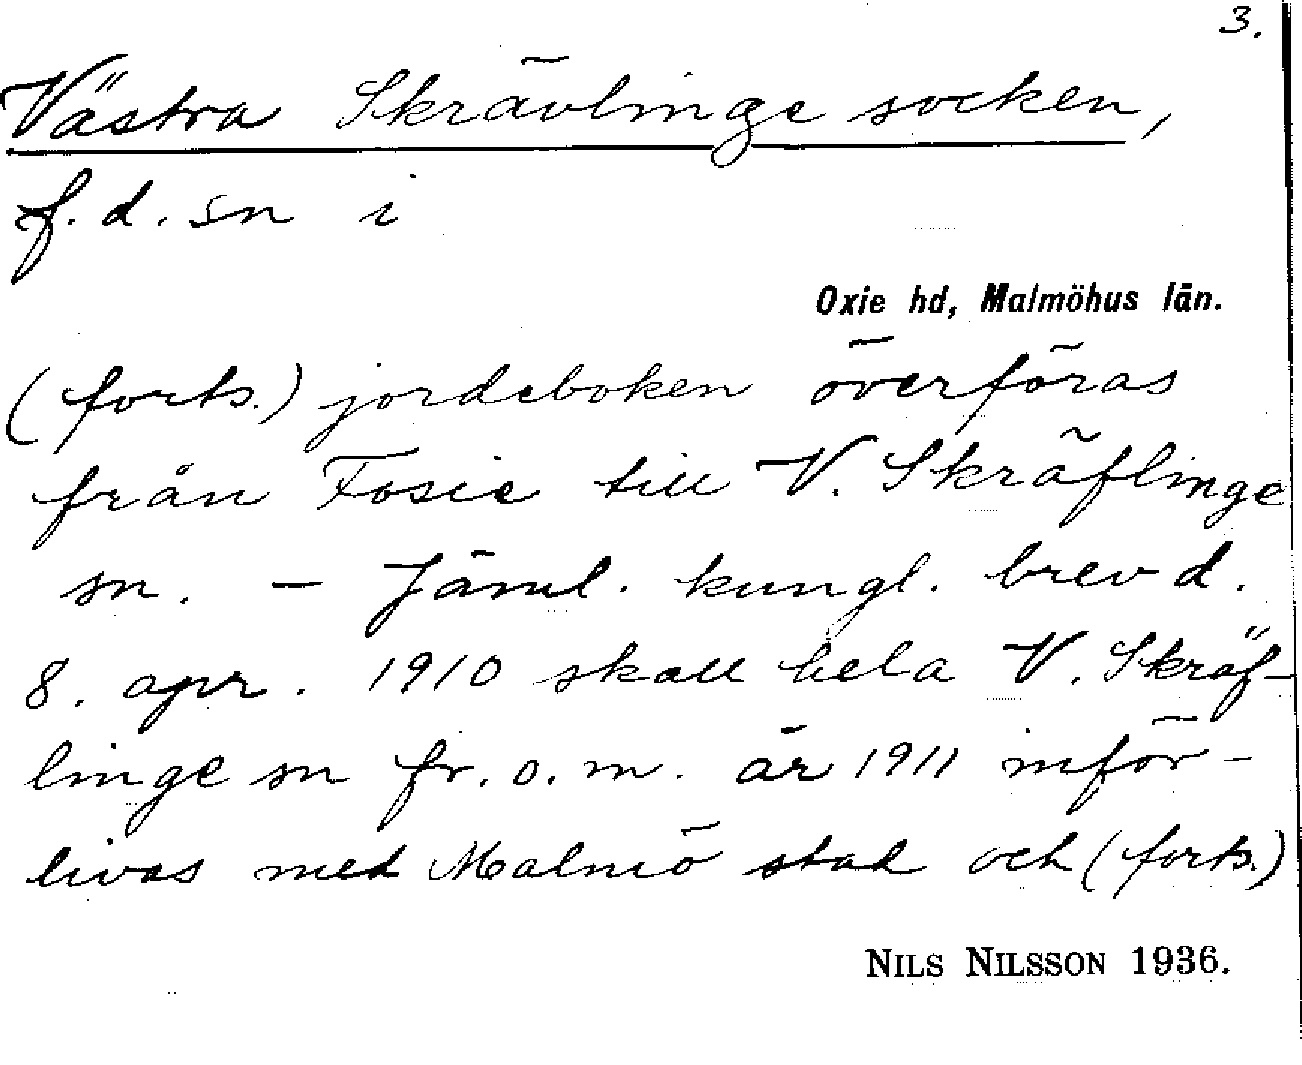 3.
Västra Skrävlinge socken,
f.d. sn i
Oxie hd, Malmöhus län.
(forts.) jordeboken överföras
från Fosie till V. Skräflinge
sn. - Jäml. kungl. brev d.
8. apr. 1910 skall hela V. Skräf-
linge sn fr. o. m. år 1911 inför-
livas med Malmö stad och (forts.)
NILS NILSSON 1936.